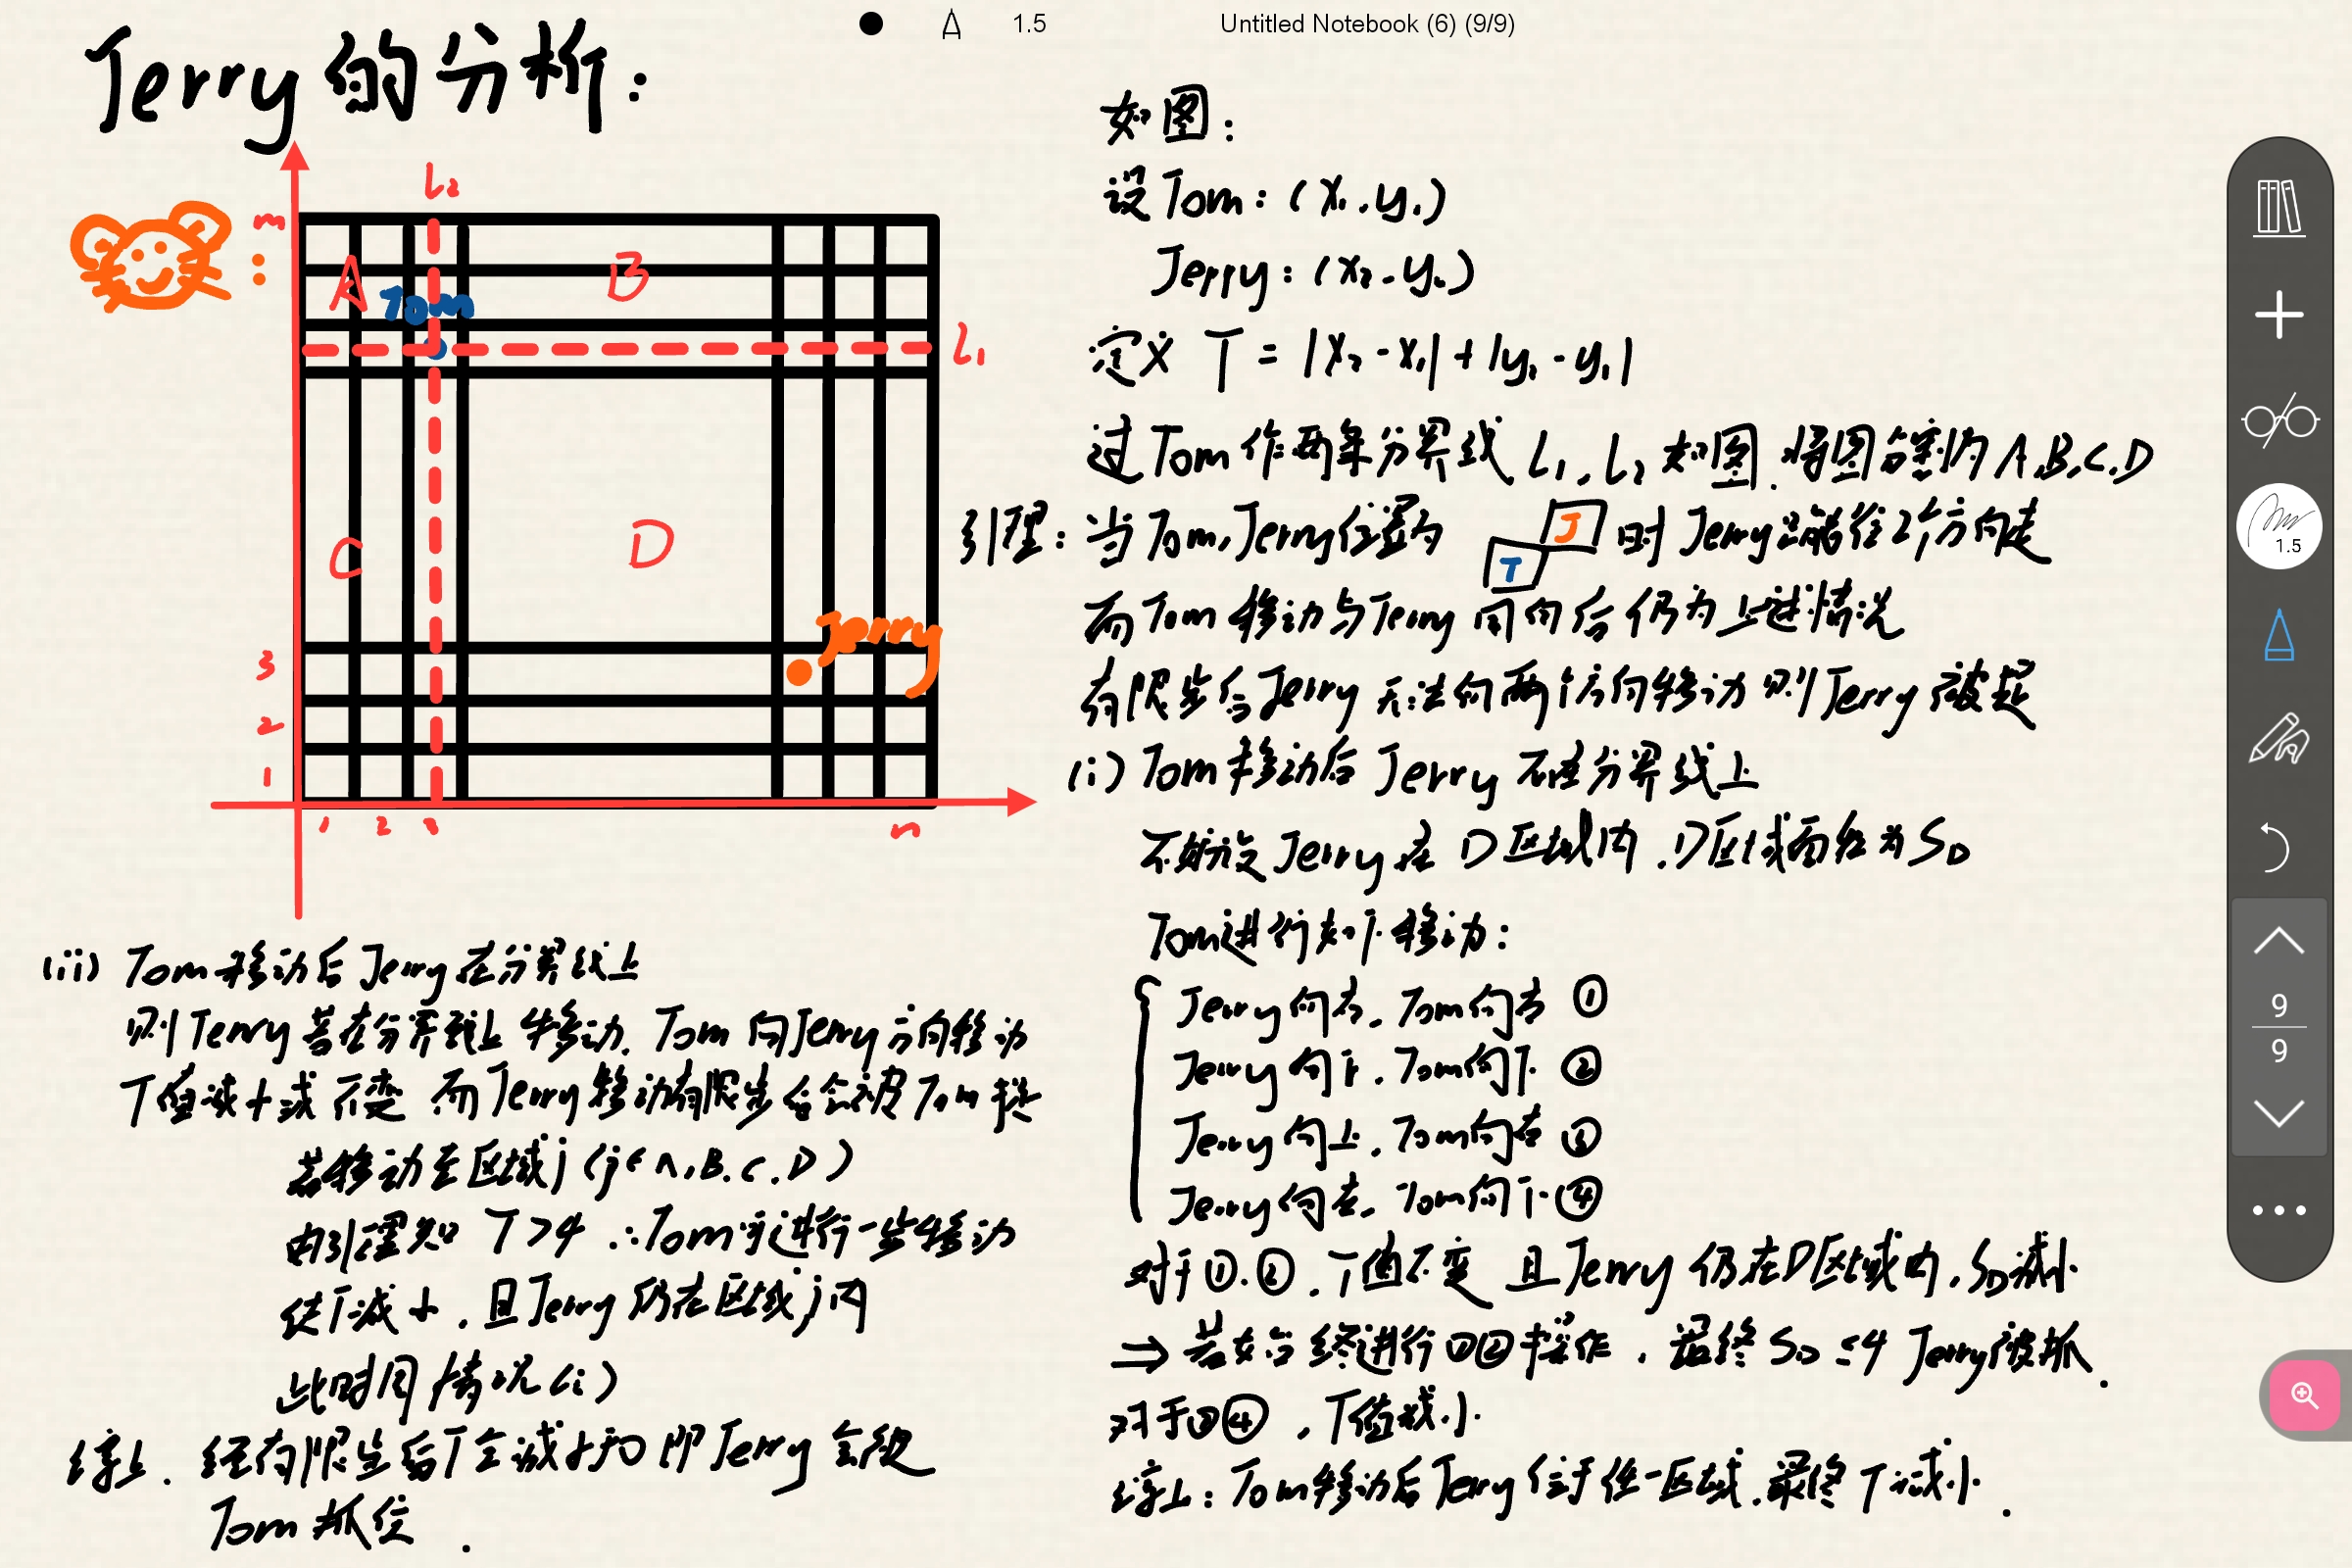 1.5
Untitled Notebook (6) (9/9)
Jerry的分析:
m
l₂
A
B
Tom
l₁
C
D
Jerry
3
2
1
1 2 3 n
如图:
设Tom: (x₁,y₁)
Jerry: (x₂,y₂)
定义 T = |x₂-x₁|+|y₂-y₁|
过Tom作两条分界线 l₁, l₂ 如图,将图分割为A,B,C,D
引理: 当Tom,Jerry位置为 J T 时 Jerry只能往2个方向走
而Tom移动与Jerry同向后仍为上述情况
有限步后Jerry无法向两个方向移动则Jerry被捉
(i) Tom移动后Jerry不在分界线上
不妨设Jerry在D区域内,D区域面积为S_D
Tom进行如下移动:
Jerry向右,Tom向右 ①
Jerry向下,Tom向下 ②
Jerry向上,Tom向右 ③
Jerry向左,Tom向下 ④
对于①,②,T值不变 且Jerry仍在D区域内,S_D减小
⇒ 若始终进行①②操作,最终S_D≤4 Jerry被抓.
对于③④,T值减小.
综上: Tom移动后Jerry位于任一区域,最终T减小.
(ii) Tom移动后Jerry在分界线上
则Jerry若在分界线上移动,Tom向Jerry方向移动
T值减小或不变 而Jerry移动有限步后会被Tom捉
若移动至区域j (j∈A,B,C,D)
由引理知 T>4 ∴Tom可进行一步移动
使T减小,且Jerry仍在区域j内
此时同情况(i)
综上,经有限步后T会减小到0即Jerry会被
Tom抓住.
1.5
9
9